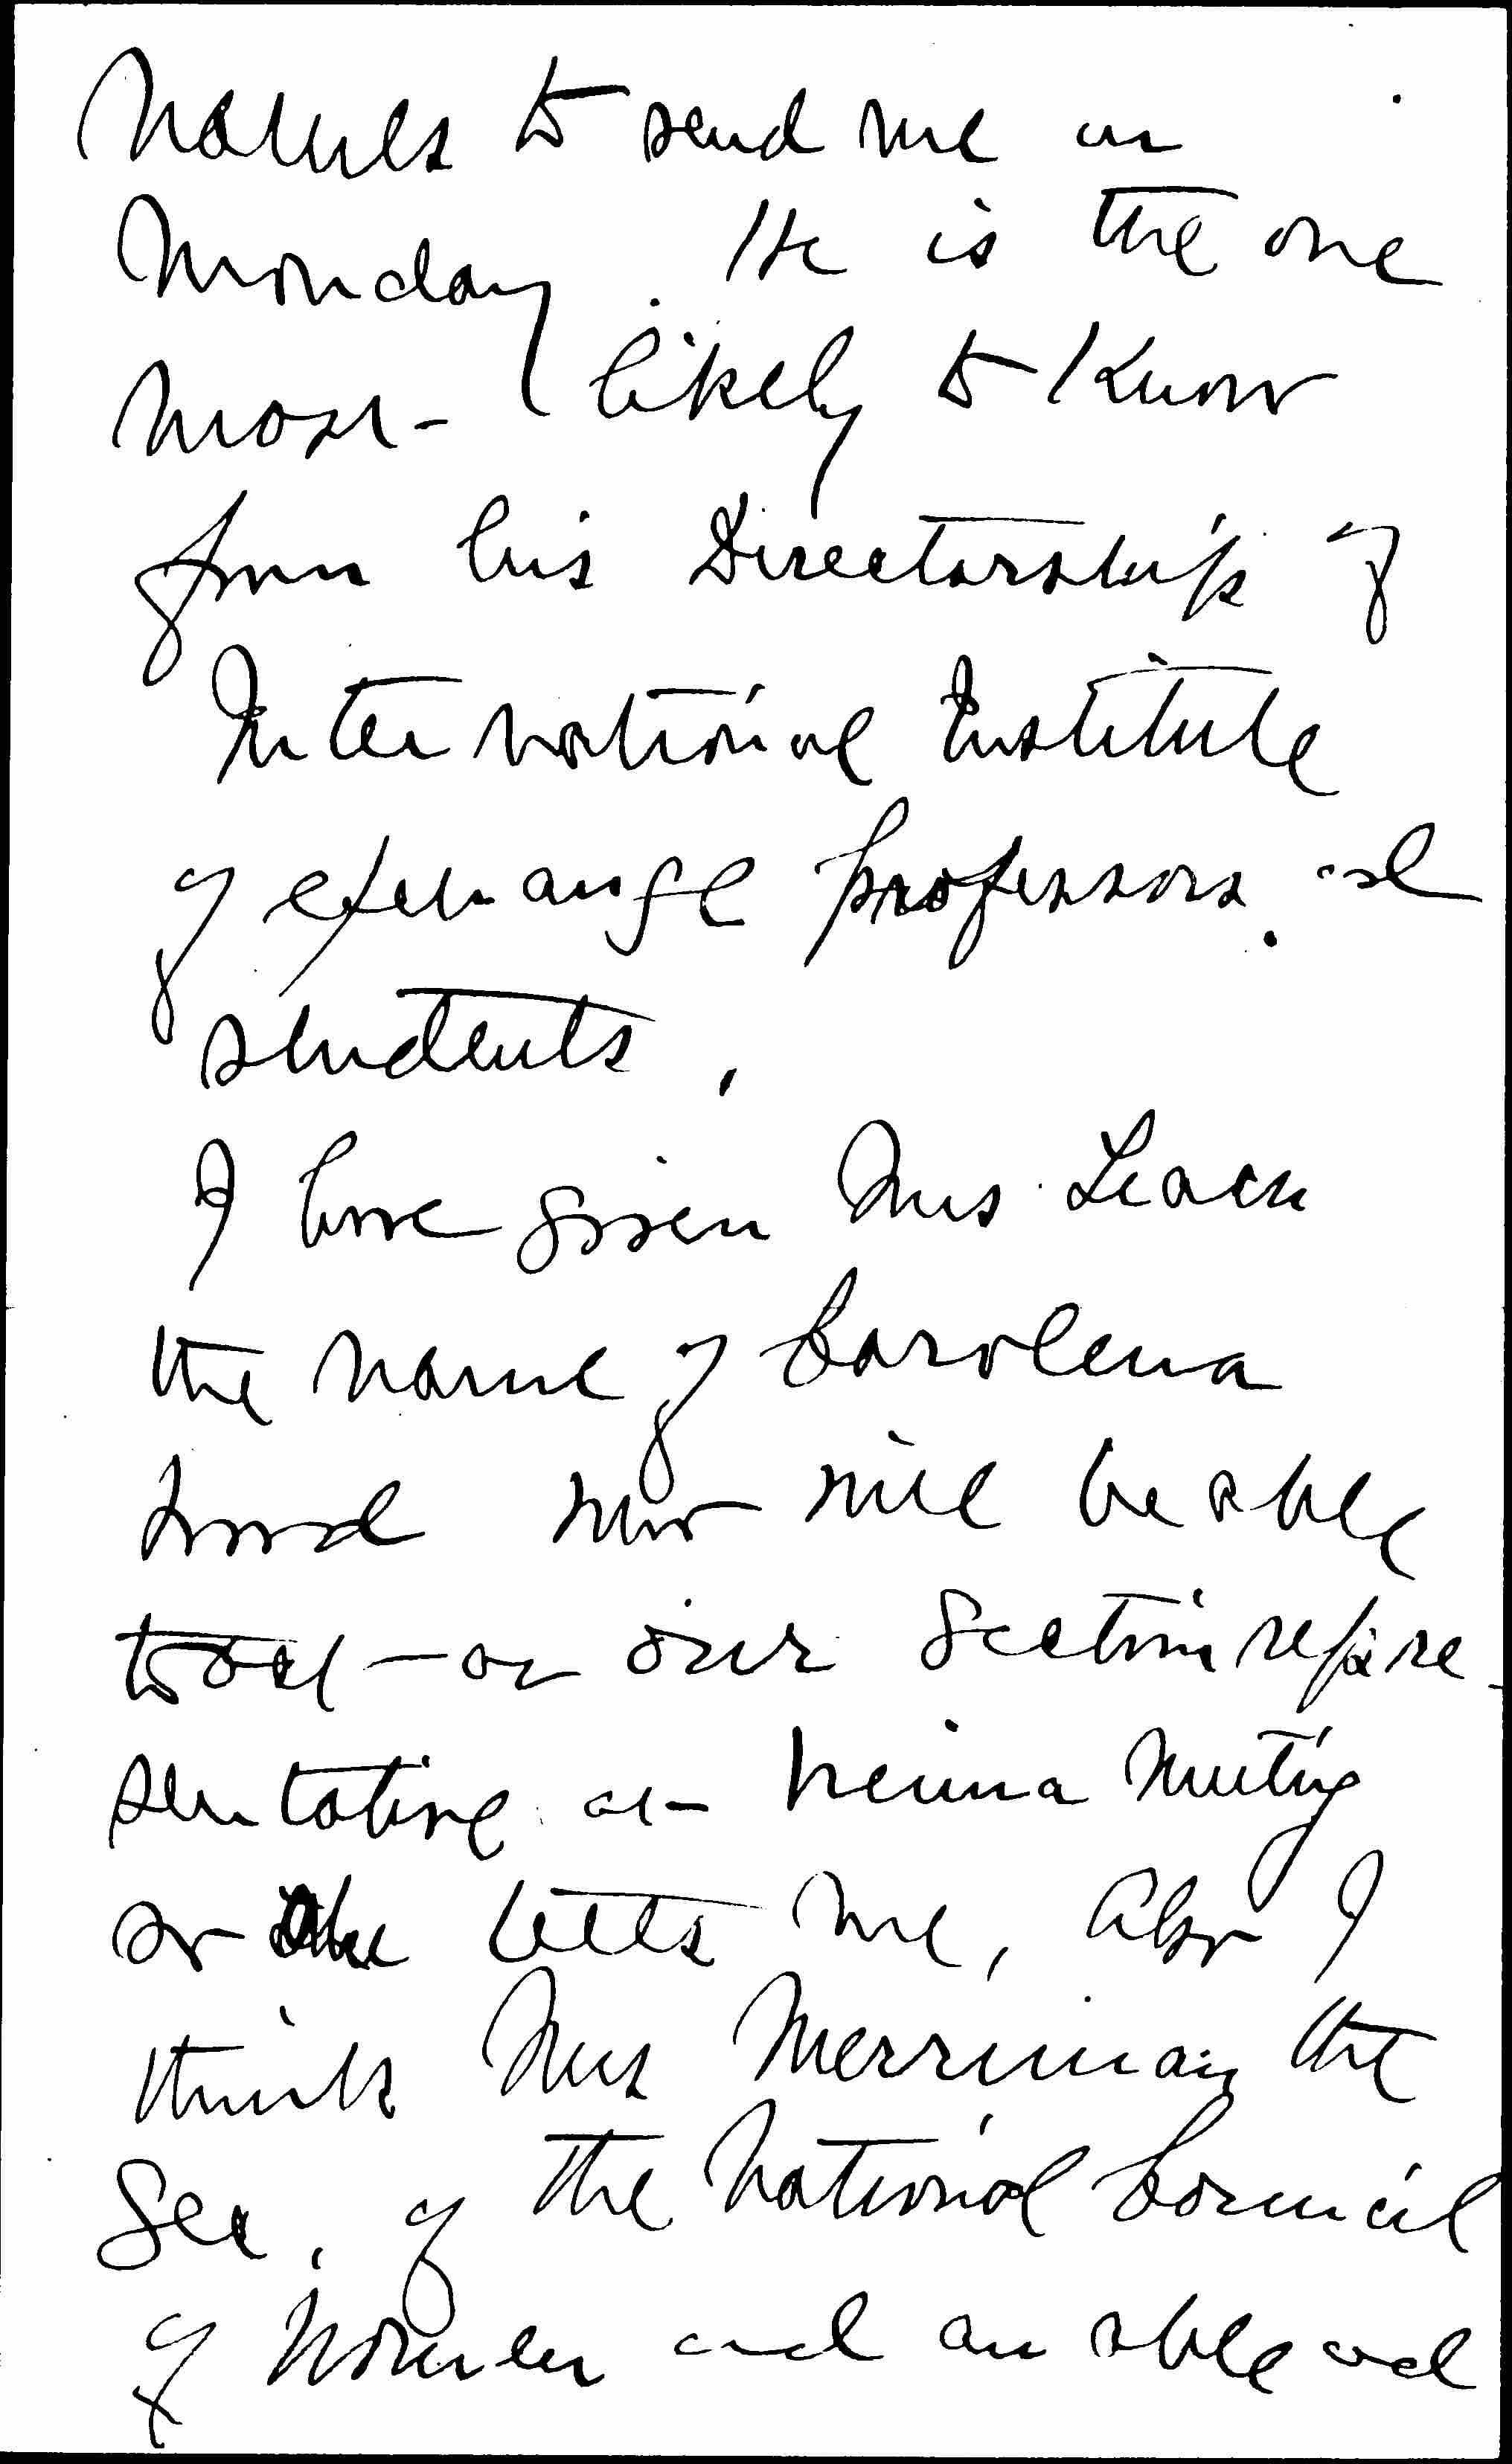 names to send me on
Monday. He is the one
most likely to know
from his Directorship of
International Institute
of exchange professors and
students.
I have given Mrs Leach
the name of Carolena
Wood who will be able
to act - as our Section repre-
sentative at Vienna Meeting
so she tells me, also I
think Mrs Merriman the
Sec. of the National Council
of Women and an able and